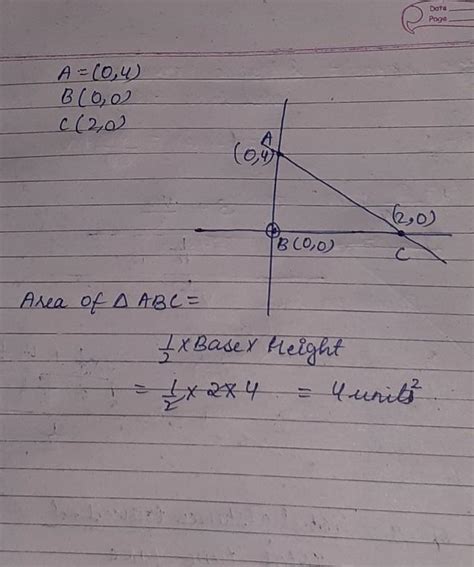 Date
Page
A = (0,4)
B(0,0)
C(2,0)
A
(0,4)
(2,0)
B(0,0)
C
Area of Δ ABC =
1/2 × Base × Height
= 1/2 × 2 × 4 = 4 units²